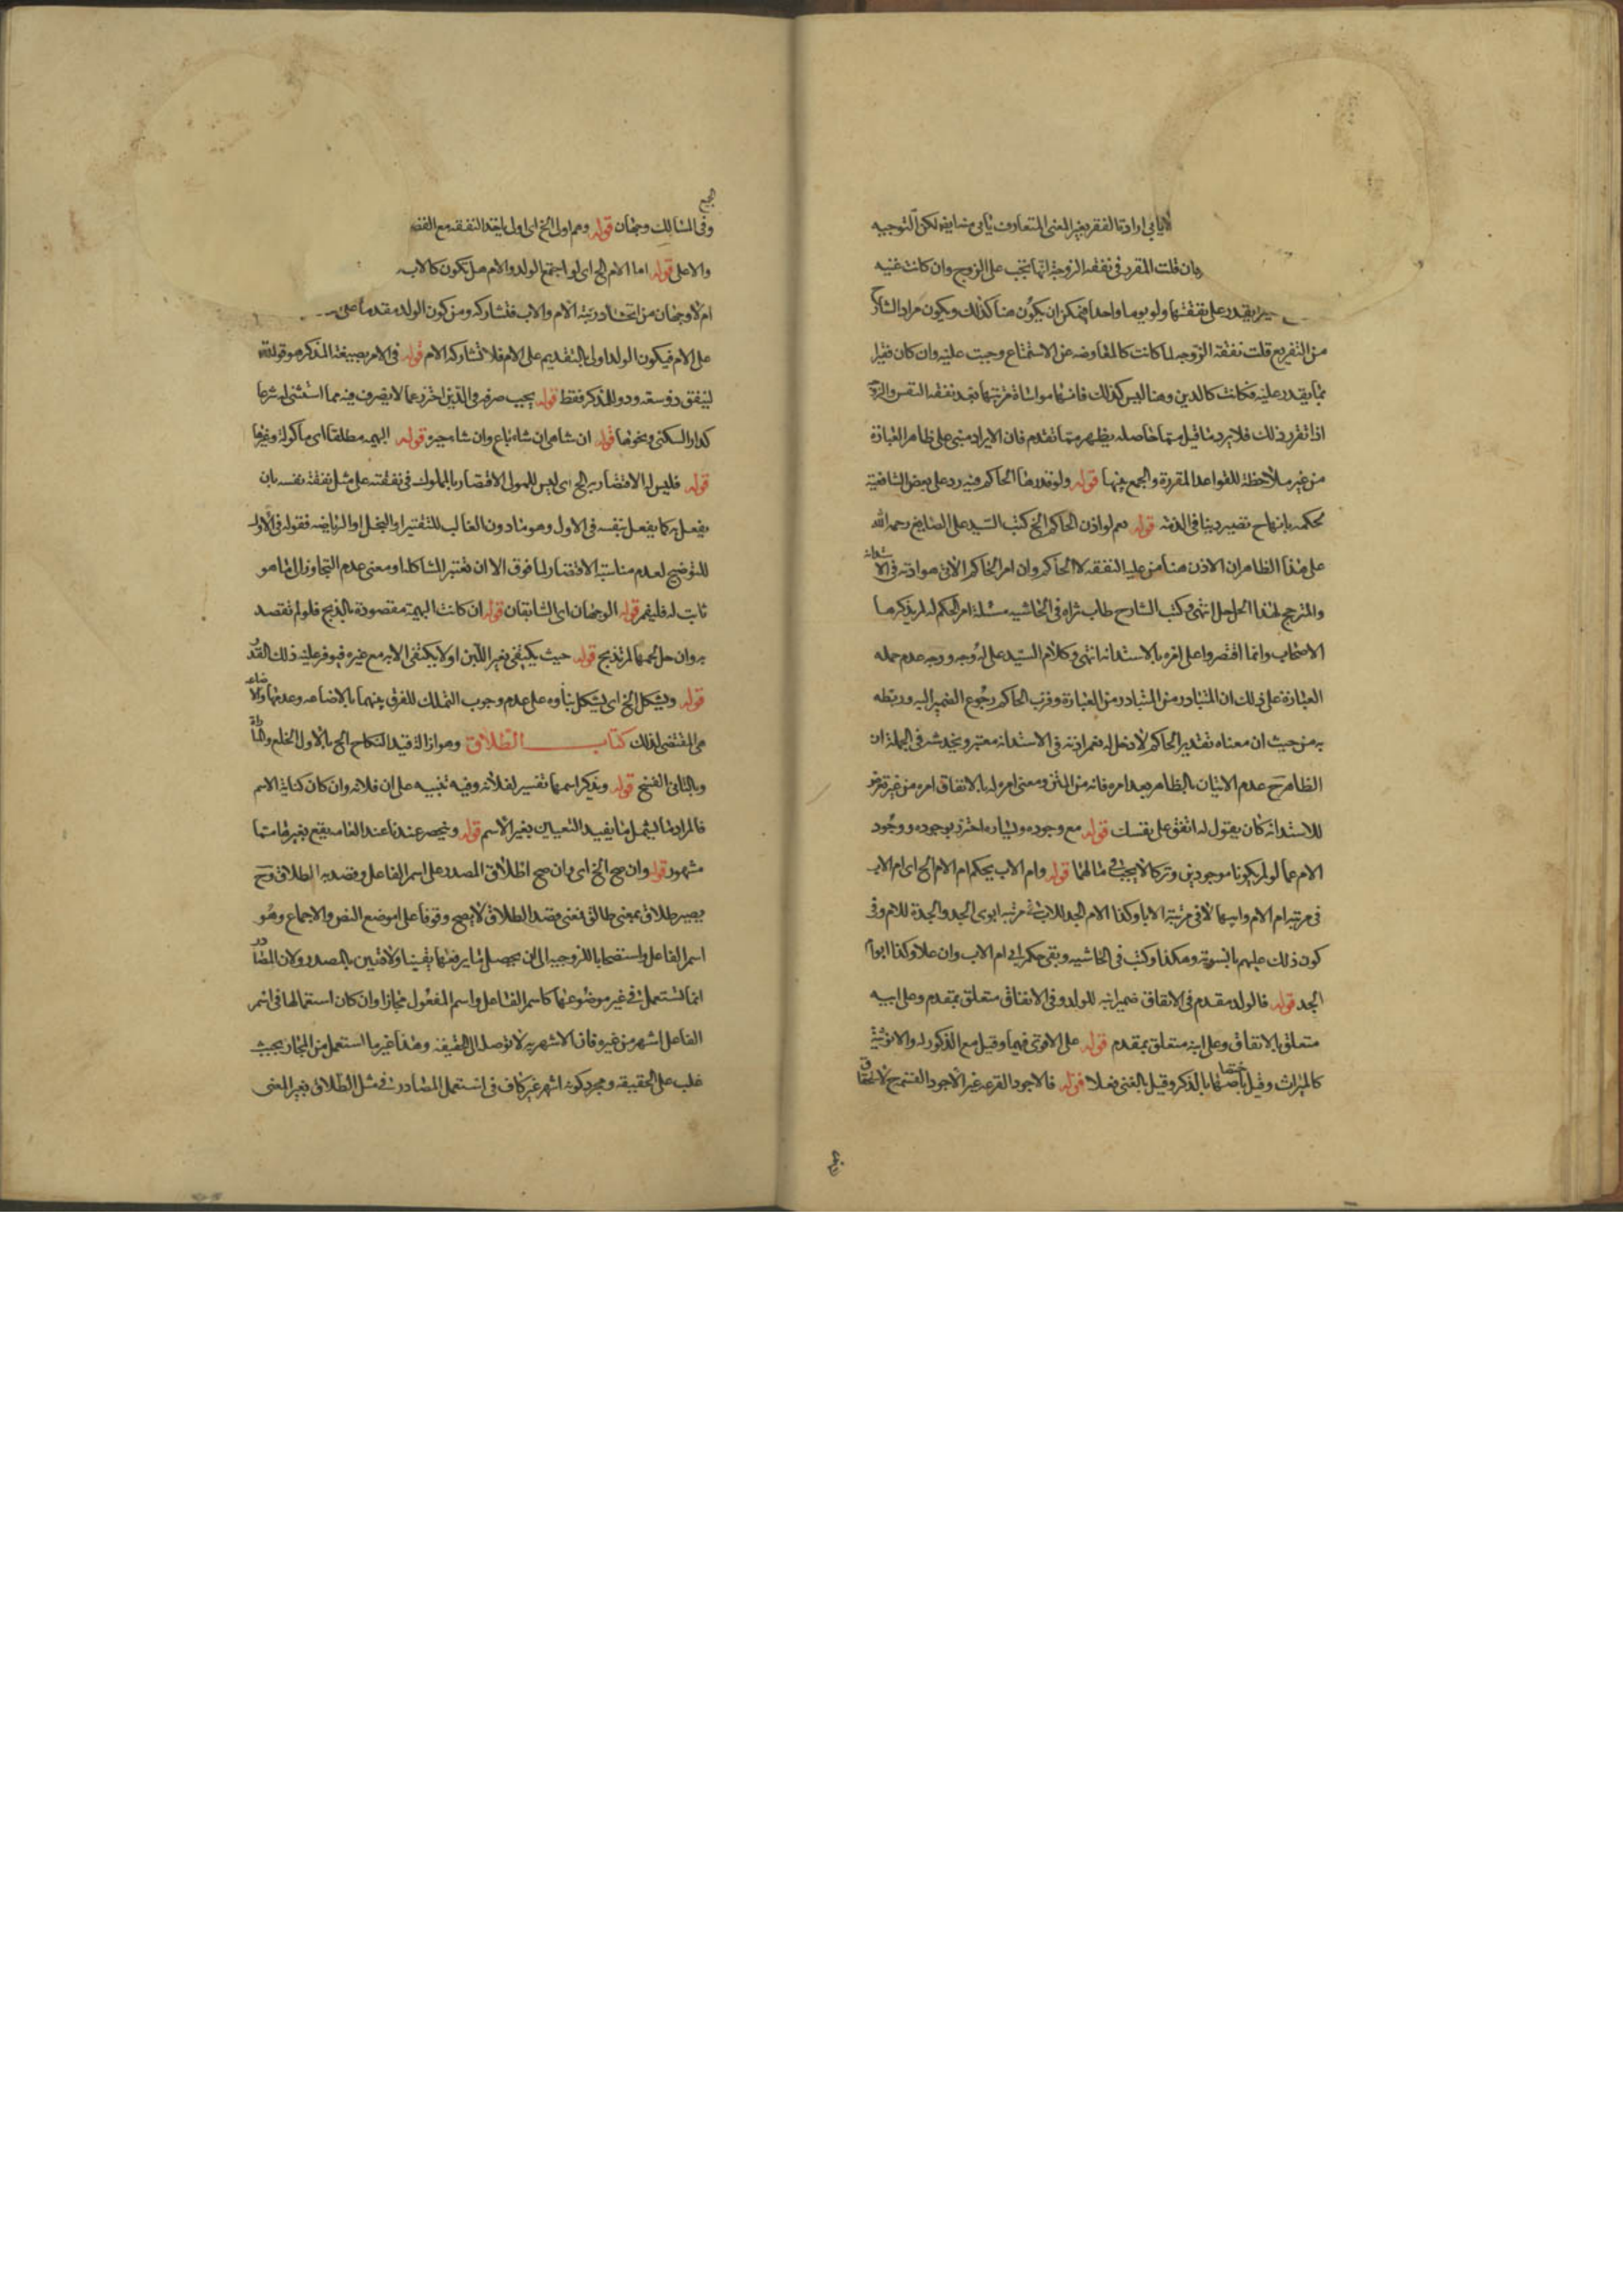 لايابي ارادة الفقر بغير المعنى المتعارف يأبى لكن التوجيه
فان قلت المقرر في نفقة الزوجة انها تجب على الزوج وان كانت غنيه
يقدر على نفقتها ولو يوما واحدا فيمكن ان يكون هنا كذلك ويكون مراد الشارح
من التفريع قلت نفقة الزوجه لما كانت كالمعاوضه عن الاستمتاع وجبت عليه وان كان فقيرا
بما يقدر عليه فكانت كالدين وهنا ليس كذلك فانها مواساة فمرتبتها بعد نفقة النفس والزوجة
اذا تقرر ذلك فلا يرد ما قيل حاصله يظهر مما تقدم فان الايراد مبنى على ظاهر العبارة
من غير ملاحظة للقواعد المقررة والجمع بينها قوله ولو قدرها الحاكم فيه رد على بعض الشافعية
لحكمه بانها ح تصير دينا في الذمة قوله نعم لو اذن الحاكم الخ كتب السيد على الصايغ رحمه الله
على هذا الظاهر ان الاذن هنا من عليه النفقه لا الحاكم وان امر الحاكم الآتى هو اذنه في الاستدانة
والمترجح لهذا الحل انتهى وكتب الشارح طاب ثراه في الحاشيه مسئلة امر الحاكم له لم يذكرها
الاصحاب وانما اقتصروا على امره بالاستدانه انتهى وكلام السيد على له وجه ووجه عدم حمله
العبارة على ذلك ان المتبادر من العبارة وقرب الحاكم رجوع الضمير اليه وربطه
به من حيث ان معناه تقدير الحاكم لا دخل له نعم اذنه في الاستدانه معتبر ويخدشه في الجملة ان
الظاهر ح عدم الاتيان بالظاهر بعد امره فانه من المتن ومعنى امره له بالانفاق امره من غير تعرض
للاستدانة كان يقول له انفق على نفسك قوله مع وجوده ويساره احترز بوجوده ووجود
الام عما لو لم يكونا موجودين وتركا لا يجب في مالهما قوله وام الاب بحكم ام الام الخ اى ام الاب
في مرتبة ام الام وابيها لا في مرتبة الاباء وكذا الام الجد للاب في مرتبة ابوى الجد والجدة للام وفي
كون ذلك عليهم بالسوية وهكذا وكتب في الحاشيه وبقى حكم اب ام الاب وان علا وكذا ابوا
الجد قوله فالولد مقدم في الانفاق ضمير ابيه للولد وفي الانفاق متعلق بمقدم وعلى ابيه
متعلق بالانفاق وعلى ابنه متعلق بمقدم قوله على الاقوى فيهما وقيل مع الذكورة والانوثية
كالميراث وقيل باختصاصها بالذكر وقيل بالغنى فعلا قوله فالاجود القرعه غير الاجود القسمة ح لا لحقاق
وفي المسالك وجهان قوله وهم اول الخ اى اول باخذ النفقه مع الفقر
والاعلى قوله اما الام الخ اى لو اجتمع الولد والام هل تكون كالاب
ام لا وجهان من اتحاد رتبة الام والاب فتشاركه ومن كون الولد مقدما على
على الام فيكون الولد اولى بالتقديم على الام فلا تشاركه الام قوله في الامر بصيغة المذكر هو قوله تعالى
لينفق ذو سعة وذو للمذكر فقط قوله يجب صرفه في الدين احترز عما لا يصرف فيه مما استثنى له شرعا
كدار السكنى ونحوها قوله ان شاء باع وان شاء قوله البهيمه مطلقا اى مأكولة وغيرها
قوله فليس له الاقتصار به الخ اى ليس للمولى الاقتصار بالمملوك في نفقته على مثل نفقة نفسه بان
يفعل به كما يفعل بنفسه في الاول وهو ما دون الغالب للتقتير او البخل او الرياضه فقوله في الاول
للتوضيح لعدم مناسبة الاقتصار لما فوق الا ان تعتبر المشاكله ومعنى عدم التجاوز الى ما هو
ثابت له فليفهم قوله الوجهان اى السابقان قوله ان كانت البهيمة مقصودة بالذبح فلو لم تقصد
به وان حل لحمها لم تذبح قوله حيث يكتفى بغير اللبن او لا يكتفى الا به مع غيره فيوفر عليه ذلك القدر
قوله ويشكل الخ اى يشكل بناؤه على عدم وجوب التملك للفرق بينهما بالاضاعه وعدمها والاضاعة
هى المقتضى لذلك كتاب الطلاق وهو ازالة قيد النكاح الخ بالاول الخلع والمباراة
وبالثانى الفسخ قوله ويذكر اسمها تفسير لفلانه وفيه تنبيه على ان فلانه وان كان كناية الاسم
فالمراد ما يشمل ما يفيد التعيين بغير الاسم قوله وينحصر عندنا عند العامه يقع بغيرها مما
مشهور قوله وان صح الخ اى وان صح اطلاق المصدر على اسم الفاعل وقصد به الطلاق وح
يصير طلاق بمعنى طالق فمعنى قصد الطلاق لا يصح وقوفا على موضع النص والاجماع وهو
اسم الفاعل واستصحابا للزوجيه الى ان يحصل ما يرفعها يقينا ولا يقين بالمصدر ولان المصادر
انما تستعمل في غير موضوعها كاسم الفاعل واسم المفعول مجازا وان كان استعمالها في اسم
الفاعل اشهر من غيره فان الاشهريه لا توصله الى الحقيقه وهذا غير ما استعمل من المجاز بحيث
غلب على الحقيقه ومجرد كونه اشهر غير كاف في استعمل المصادر في مثل الطلاق بغير المعنى